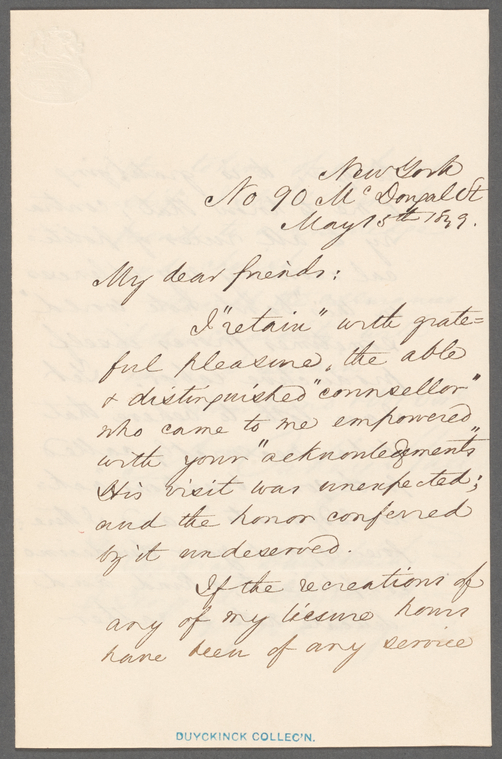 New York
No 90 McDougal St
May 15th 1849.
My dear friends:
I "retain" with grate=
ful pleasure, the able
& distinguished "counsellor"
who came to me empowered
with your "acknowledgments"
His visit was unexpected;
and the honor conferred
by it undeserved.
If the recreations of
any of my liesure hours
have been of any service
DUYCKINCK COLLEC'N.